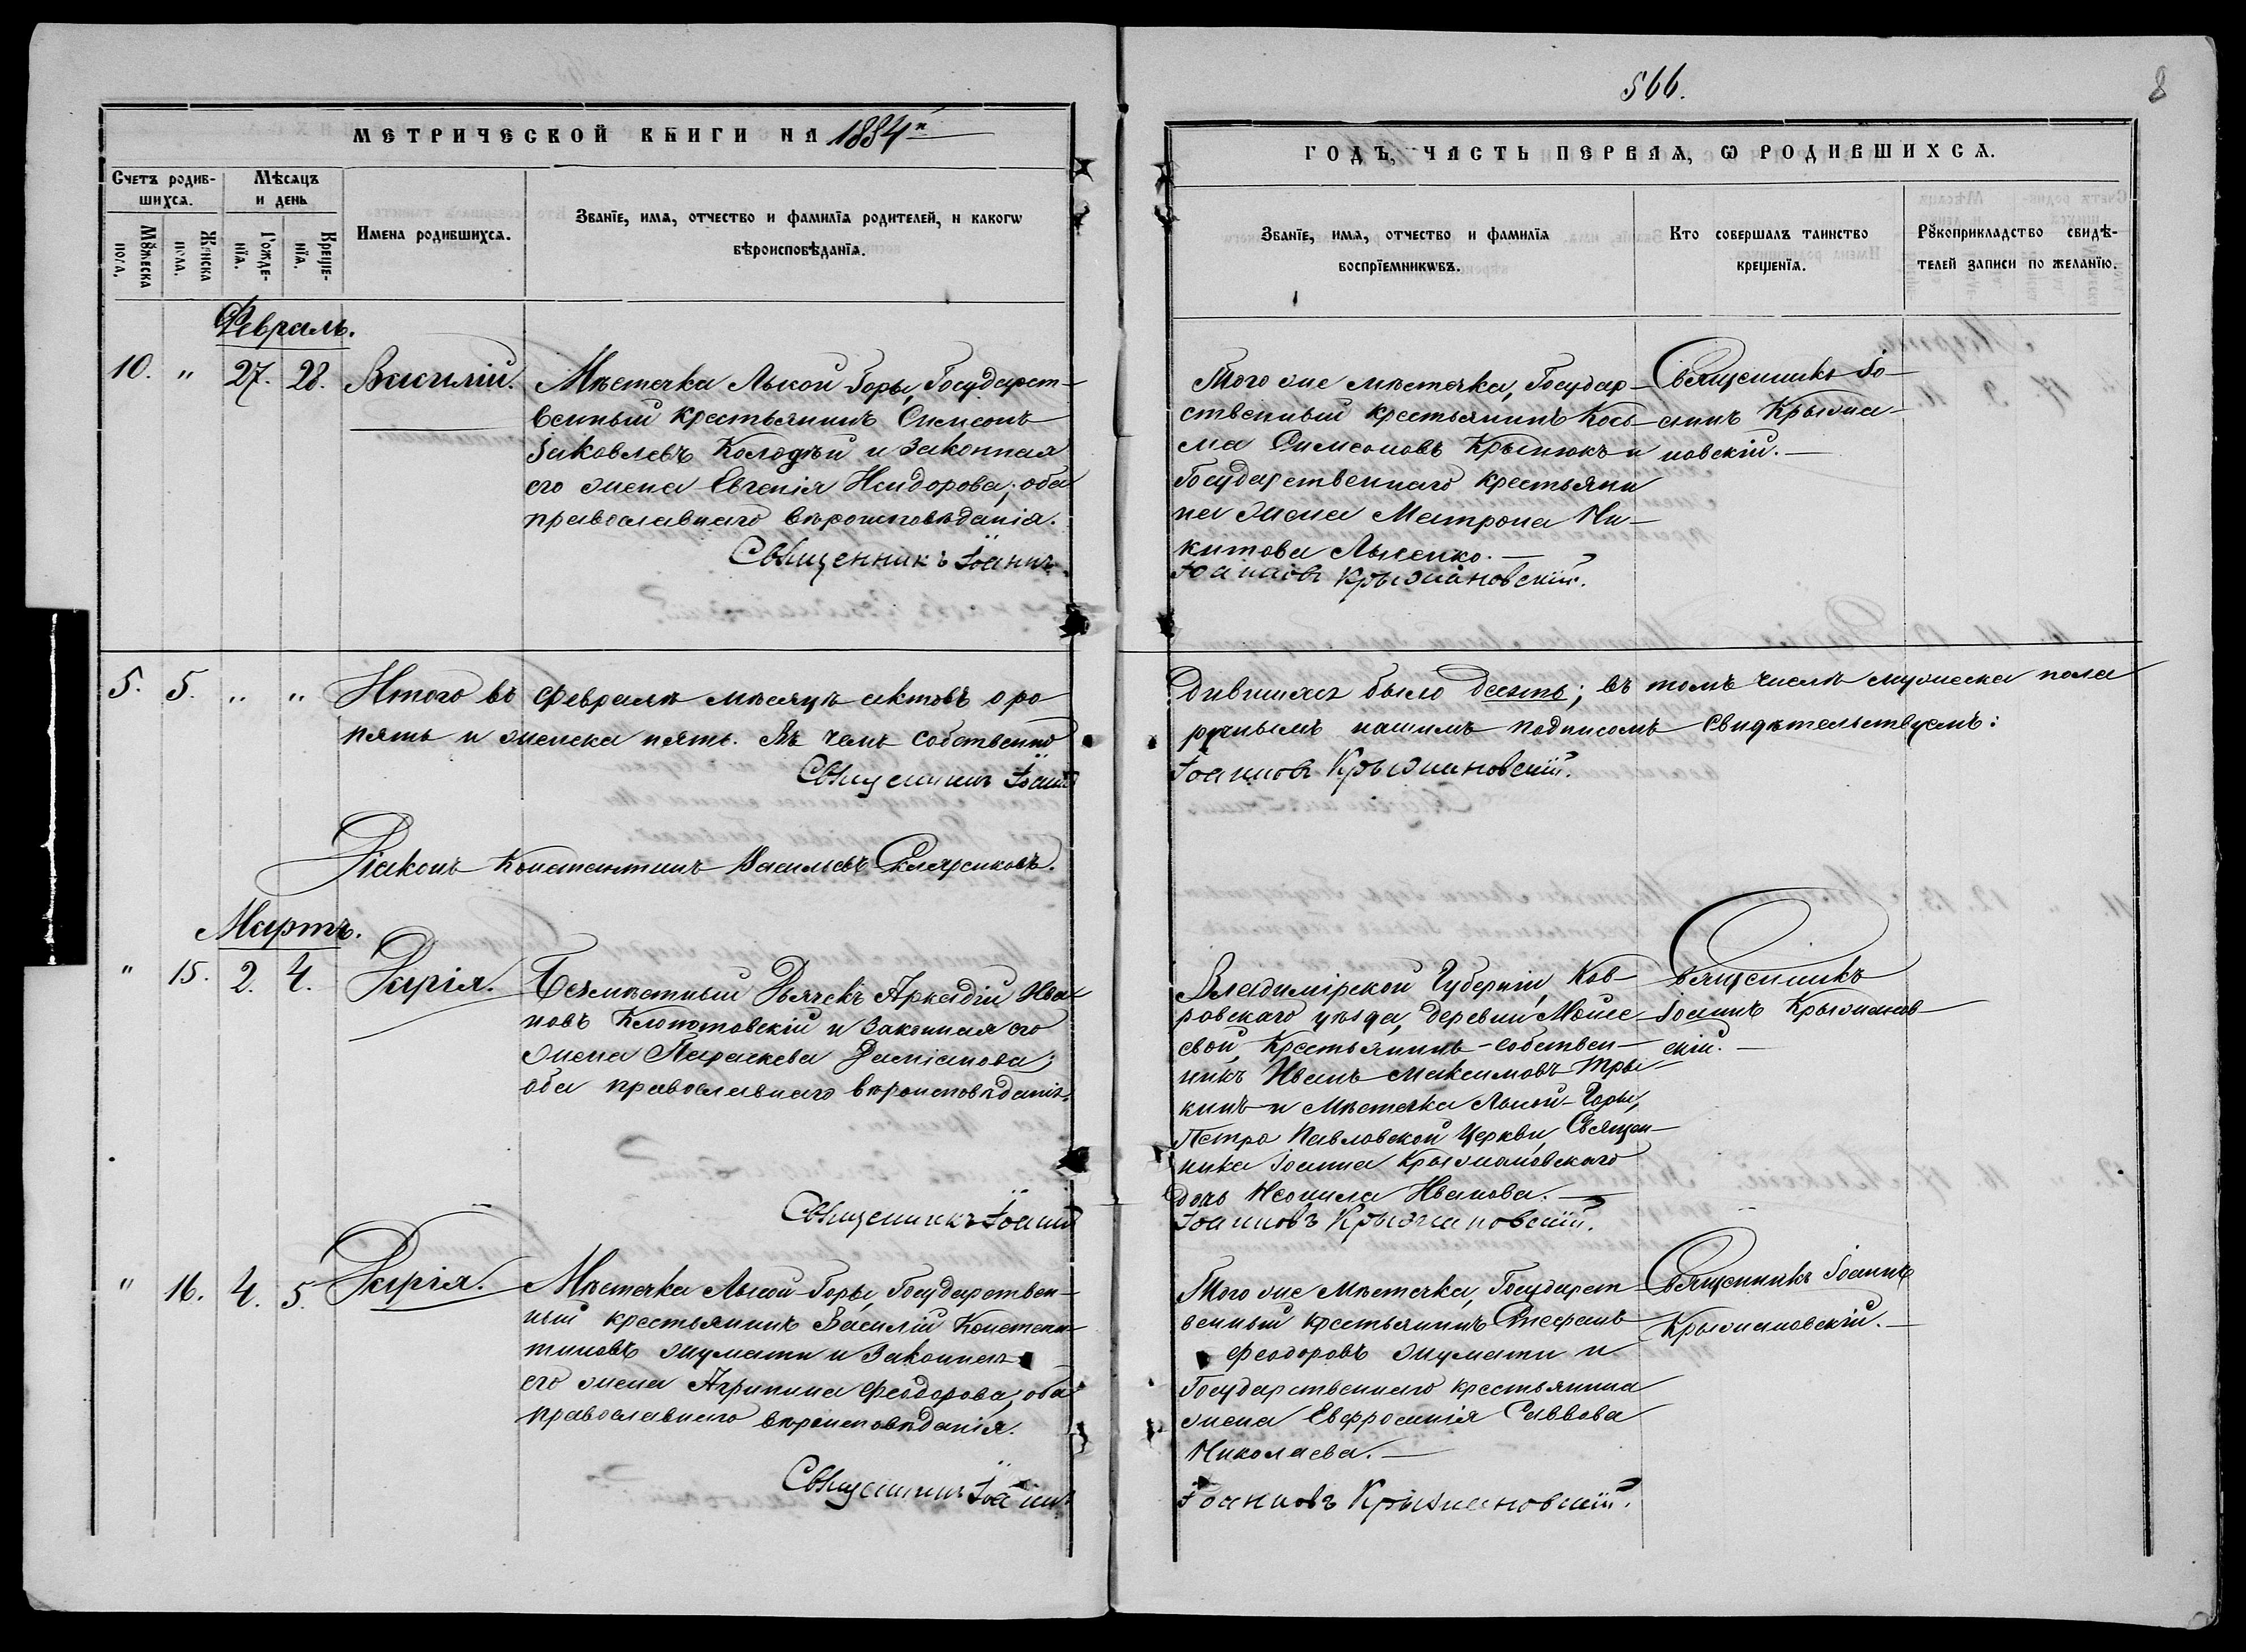 566.
8
МЕТРИЧЕСКОЙ КНИГИ НА 1884й
ГОДЪ, ЧАСТЬ ПЕРВАЯ, Ѡ РОДИВШИХСЯ.
Счетъ родив-
шихся.
Мѣсяцъ
и день
Мꙋжеска
пола.
Женска
пола.
Рожде-
нїя.
Креще-
нїя.
Имена родившихся.
Званїе, имя, отчество и фамилїя родителей, и какогѡ
вѣроисповѣданїя.
Званїе, имя, отчество и фамилїя
воспрїемникѡвъ.
Кто совершалъ таинство
крещенїя.
Рꙋкоприкладство свидѣ-
телей записи по желанїю.
Февраль.
10. " 27. 28. Василій.
Мѣстечка Лысой-Горы, Государст-
венный крестьянинъ Симеонъ
Іаковлевъ Колодѣй и законная
его жена Евгенія Исидорова; оба
православнаго вѣроисповѣданія.
Священникъ Іоаннъ
Того же мѣстечка, Государ-
ственный крестьянинъ Кось-
ма Симеоновъ Крынюкъ и
Государственнаго крестьяни
на жена Матрона Ни-
китова Лысенко.
Іоанновъ Крыжановскій.
Священникъ Іо-
аннъ Крыжа-
новскій.
5. 5. " " Итого въ февралѣ мѣсяцѣ актовъ о ро
дившихся было десять; въ томъ числѣ мужеска пола
пять и женска пять. Въ чемъ собственно
ручнымъ нашимъ подписомъ свидѣтельствуемъ:
Священникъ Іоаннъ
Іоанновъ Крыжановскій.
Діаконъ Константинъ Васильевъ Скляренковъ.
Мартъ.
" 15. 2. 4. Дарія.
Безмѣстный Дьячекъ Аркадій Ива-
новъ Клопотовскій и законная его
жена Параскева Даміанова;
оба православнаго вѣроисповѣданія.
Священникъ Іоаннъ
Владимірской Губерніи, Ков-
ровскаго уѣзда, деревни Моисе
евой, Крестьянинъ-собствен-
никъ Иванъ Максимовъ Тры-
кинъ и Мѣстечка Лысой-Горы,
Петро Павловской Церкви, Священ-
ника Іоанна Крыжановскаго
дочь Неонила Иванова.
Іоанновъ Крыжановскій.
Священникъ
Іоаннъ Крыжанов-
скій.
" 16. 4. 5. Дарія.
Мѣстечка Лысой-Горы, Государствен-
ный крестьянинъ Василій Констан-
тиновъ Жумати и законная
его жена Агрипина Феодорова; оба
православнаго вѣроисповѣданія.
Священникъ Іоаннъ
Того же Мѣстечка, Государст
венный крестьянинъ Стефанъ
Феодоровъ Жумати и
Государственнаго крестьянина
жена Евфросинія Саввова
Николаева.
Іоанновъ Крыжановскій.
Священникъ Іоаннъ
Крыжановскій.